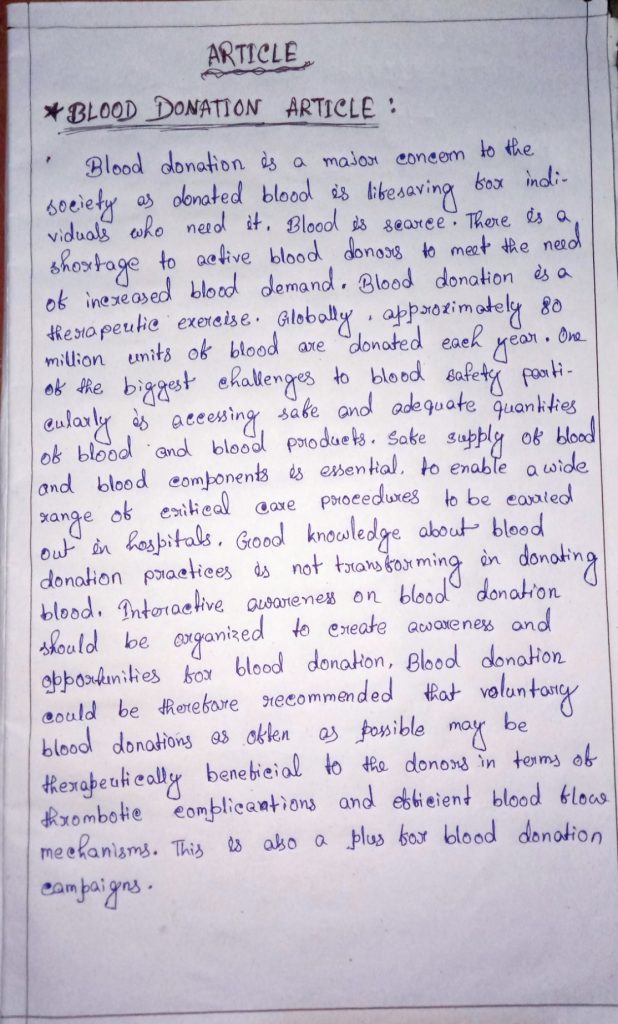 ARTICLE
* BLOOD DONATION ARTICLE :
Blood donation is a major concern to the
society as donated blood is lifesaving for indi-
viduals who need it. Blood is scarce. There is a
shortage to active blood donors to meet the need
of increased blood demand. Blood donation is a
therapeutic exercise. Globally, approximately 80
million units of blood are donated each year. One
of the biggest challenges to blood safety parti-
cularly is accessing safe and adequate quantities
of blood and blood products. Safe supply of blood
and blood components is essential, to enable a wide
range of critical care procedures to be carried
out in hospitals. Good knowledge about blood
donation practices is not transforming in donating
blood. Interactive awareness on blood donation
should be organized to create awareness and
opportunities for blood donation, Blood donation
could be therefore recommended that voluntary
blood donations as often as possible may be
therapeutically beneficial to the donors in terms of
thrombotic complicantions and efficient blood flow
mechanisms. This is also a plus for blood donation
campaigns.